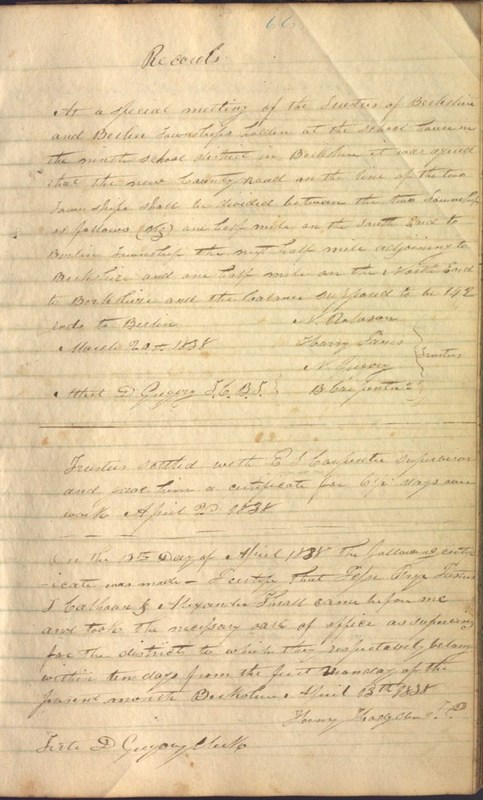 66
Records
At a special meeting of the Trustees of Berkshire
and Berlin Townships holden at the School house in
the ninth School district in Berkshire it was agreed
that the new County road on the line of the two
Townships shall be divided between the two Townships
as follows (viz) one half mile on the South End to
Berlin Township the next half mile adjoining to
Berkshire and one half mile on the North End
to Berkshire and the balance supposed to be 142
rods to Berlin
March 2 1838
Attest D Gregory T. C. B. T.
Harry
Trustees
B Carpenter
Trustees settled with E Carpenter Supervisor
and gave him a certificate for days
work April 2D 1838
On the 13th Day of April 1838 the following certif
icate was made - I certify that
Calhoun & Alexander came before me
and took the necessary oath of office as supervisors
for the districts to which they respectively belong
within ten days from the first Monday of the
present month Berkshire April 13th 1838
Teste D Gregory Clerk